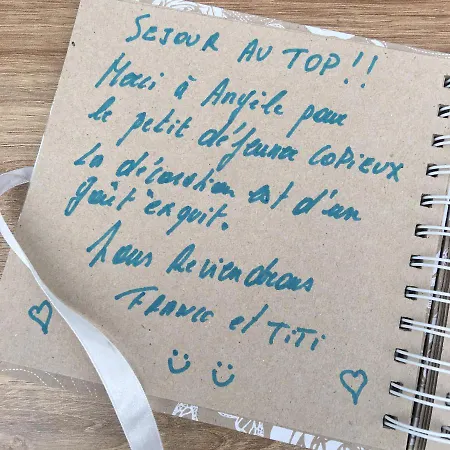 SEJOUR AU TOP!!
Merci à Angèle pour
le petit déjeuner COPIEUX
La décoration est d'un
goût exquit.
Nous Reviendrons
FRANCE et TITI